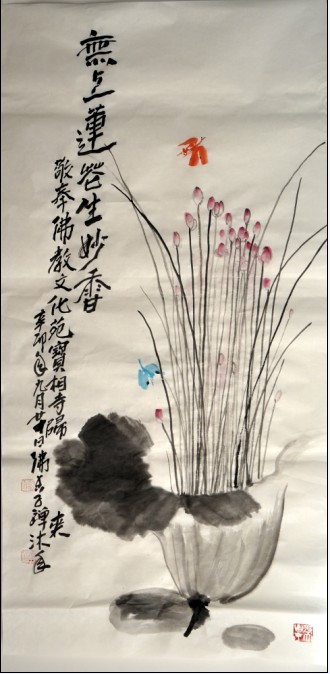 無上蓮花生妙香
敬奉佛教文化苑寶相寺歸來
辛卯年九月廿日佛弟子禪沐手